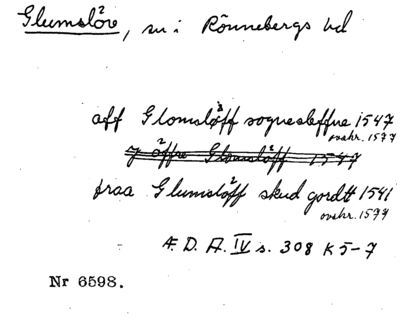 Glumslöv, sn i Rönnebergs hd
aff Glomsløff sognesleffue 1547
avskr. 1577
j öffre Glomslöff 1547
fraa Glumsløff skud gordtt 1541
avskr. 1577
Æ. D. A. IV s. 308 K 5-7
Nr 6598.